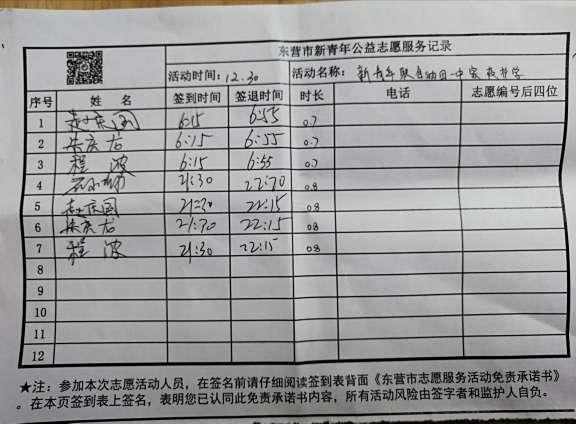 东营市新青年公益志愿服务记录
活动时间：12.30 活动名称：新青年
序号 姓 名 签到时间 签退时间 时长 电话 志愿编号后四位
1 赵庆国 6:15 6:55 0.7
2 朱庆龙 6:15 6:55 0.7
3 程波 6:15 6:55 0.7
4 21:30 0.8
5 赵庆国 22:15 0.8
6 朱庆龙 21:30 22:15 0.8
7 程波 21:30 22:15 0.8
8
9
10
11
12
★注：参加本次志愿活动人员，在签名前请仔细阅读签到表背面《东营市志愿服务活动免责承诺书》
。在本页签到表上签名，表明您已认同此免责承诺书内容，所有活动风险由签字者和监护人自负。